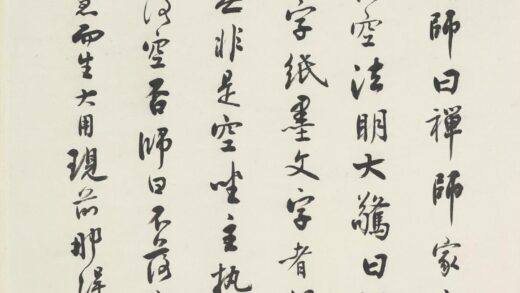 師曰禪師家
空法明大驚曰
字紙墨文字者
非是空坐主執
落空否師曰不落
慧而生大用現前那得